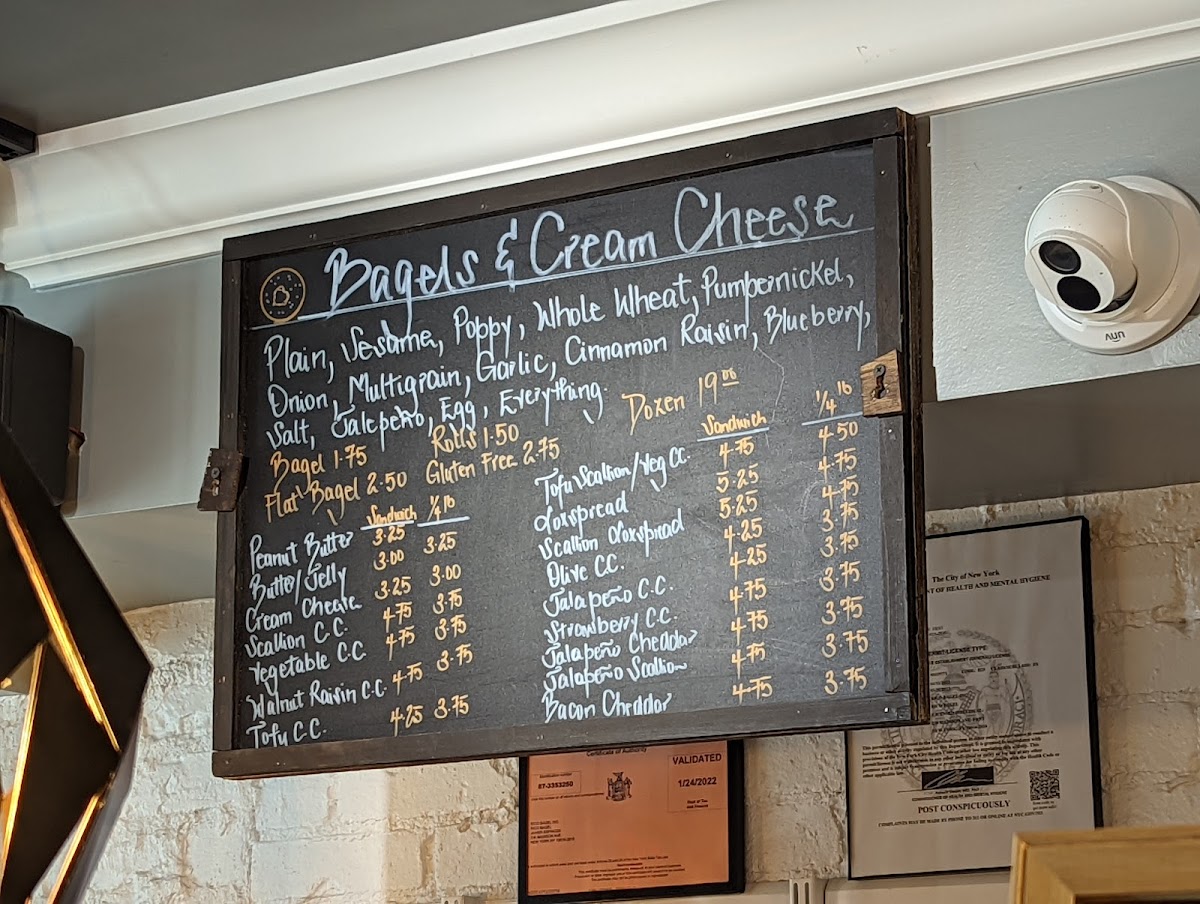 Bagels & Cream Cheese
Plain, Sesame, Poppy, Whole Wheat, Pumpernickel,
Onion, Multigrain, Garlic, Cinnamon Raisin, Blueberry,
Salt, Jalepeño, Egg, Everything.
Bagel 1.75 Rolls 1.50 Dozen 19.00
Flat Bagel 2.50 Gluten Free 2.75
Sandwich 1/4 lb
Peanut Butter 3.25 3.25
Butter/Jelly 3.00 3.00
Cream Cheese 3.25 3.75
Scallion C.C. 4.75 3.75
Vegetable C.C. 4.75 3.75
Walnut Raisin C.C. 4.75
Tofu C.C. 4.25 3.75
Sandwich 1/4 lb
Tofu Scallion/Veg C.C. 4.75 4.50
Loxspread 5.25 4.75
Scallion Loxspread 5.25 4.75
Olive C.C. 4.25 3.75
Jalapeño C.C. 4.25 3.75
Strawberry C.C. 4.75 3.75
Jalapeño Cheddar 4.75 3.75
Jalapeño Scallion 4.75 3.75
Bacon Cheddar 4.75 3.75
UNV
Certificate of Authority
VALIDATED
1/24/2022
The City of New York
OF HEALTH AND MENTAL HYGIENE
POST CONSPICUOUSLY